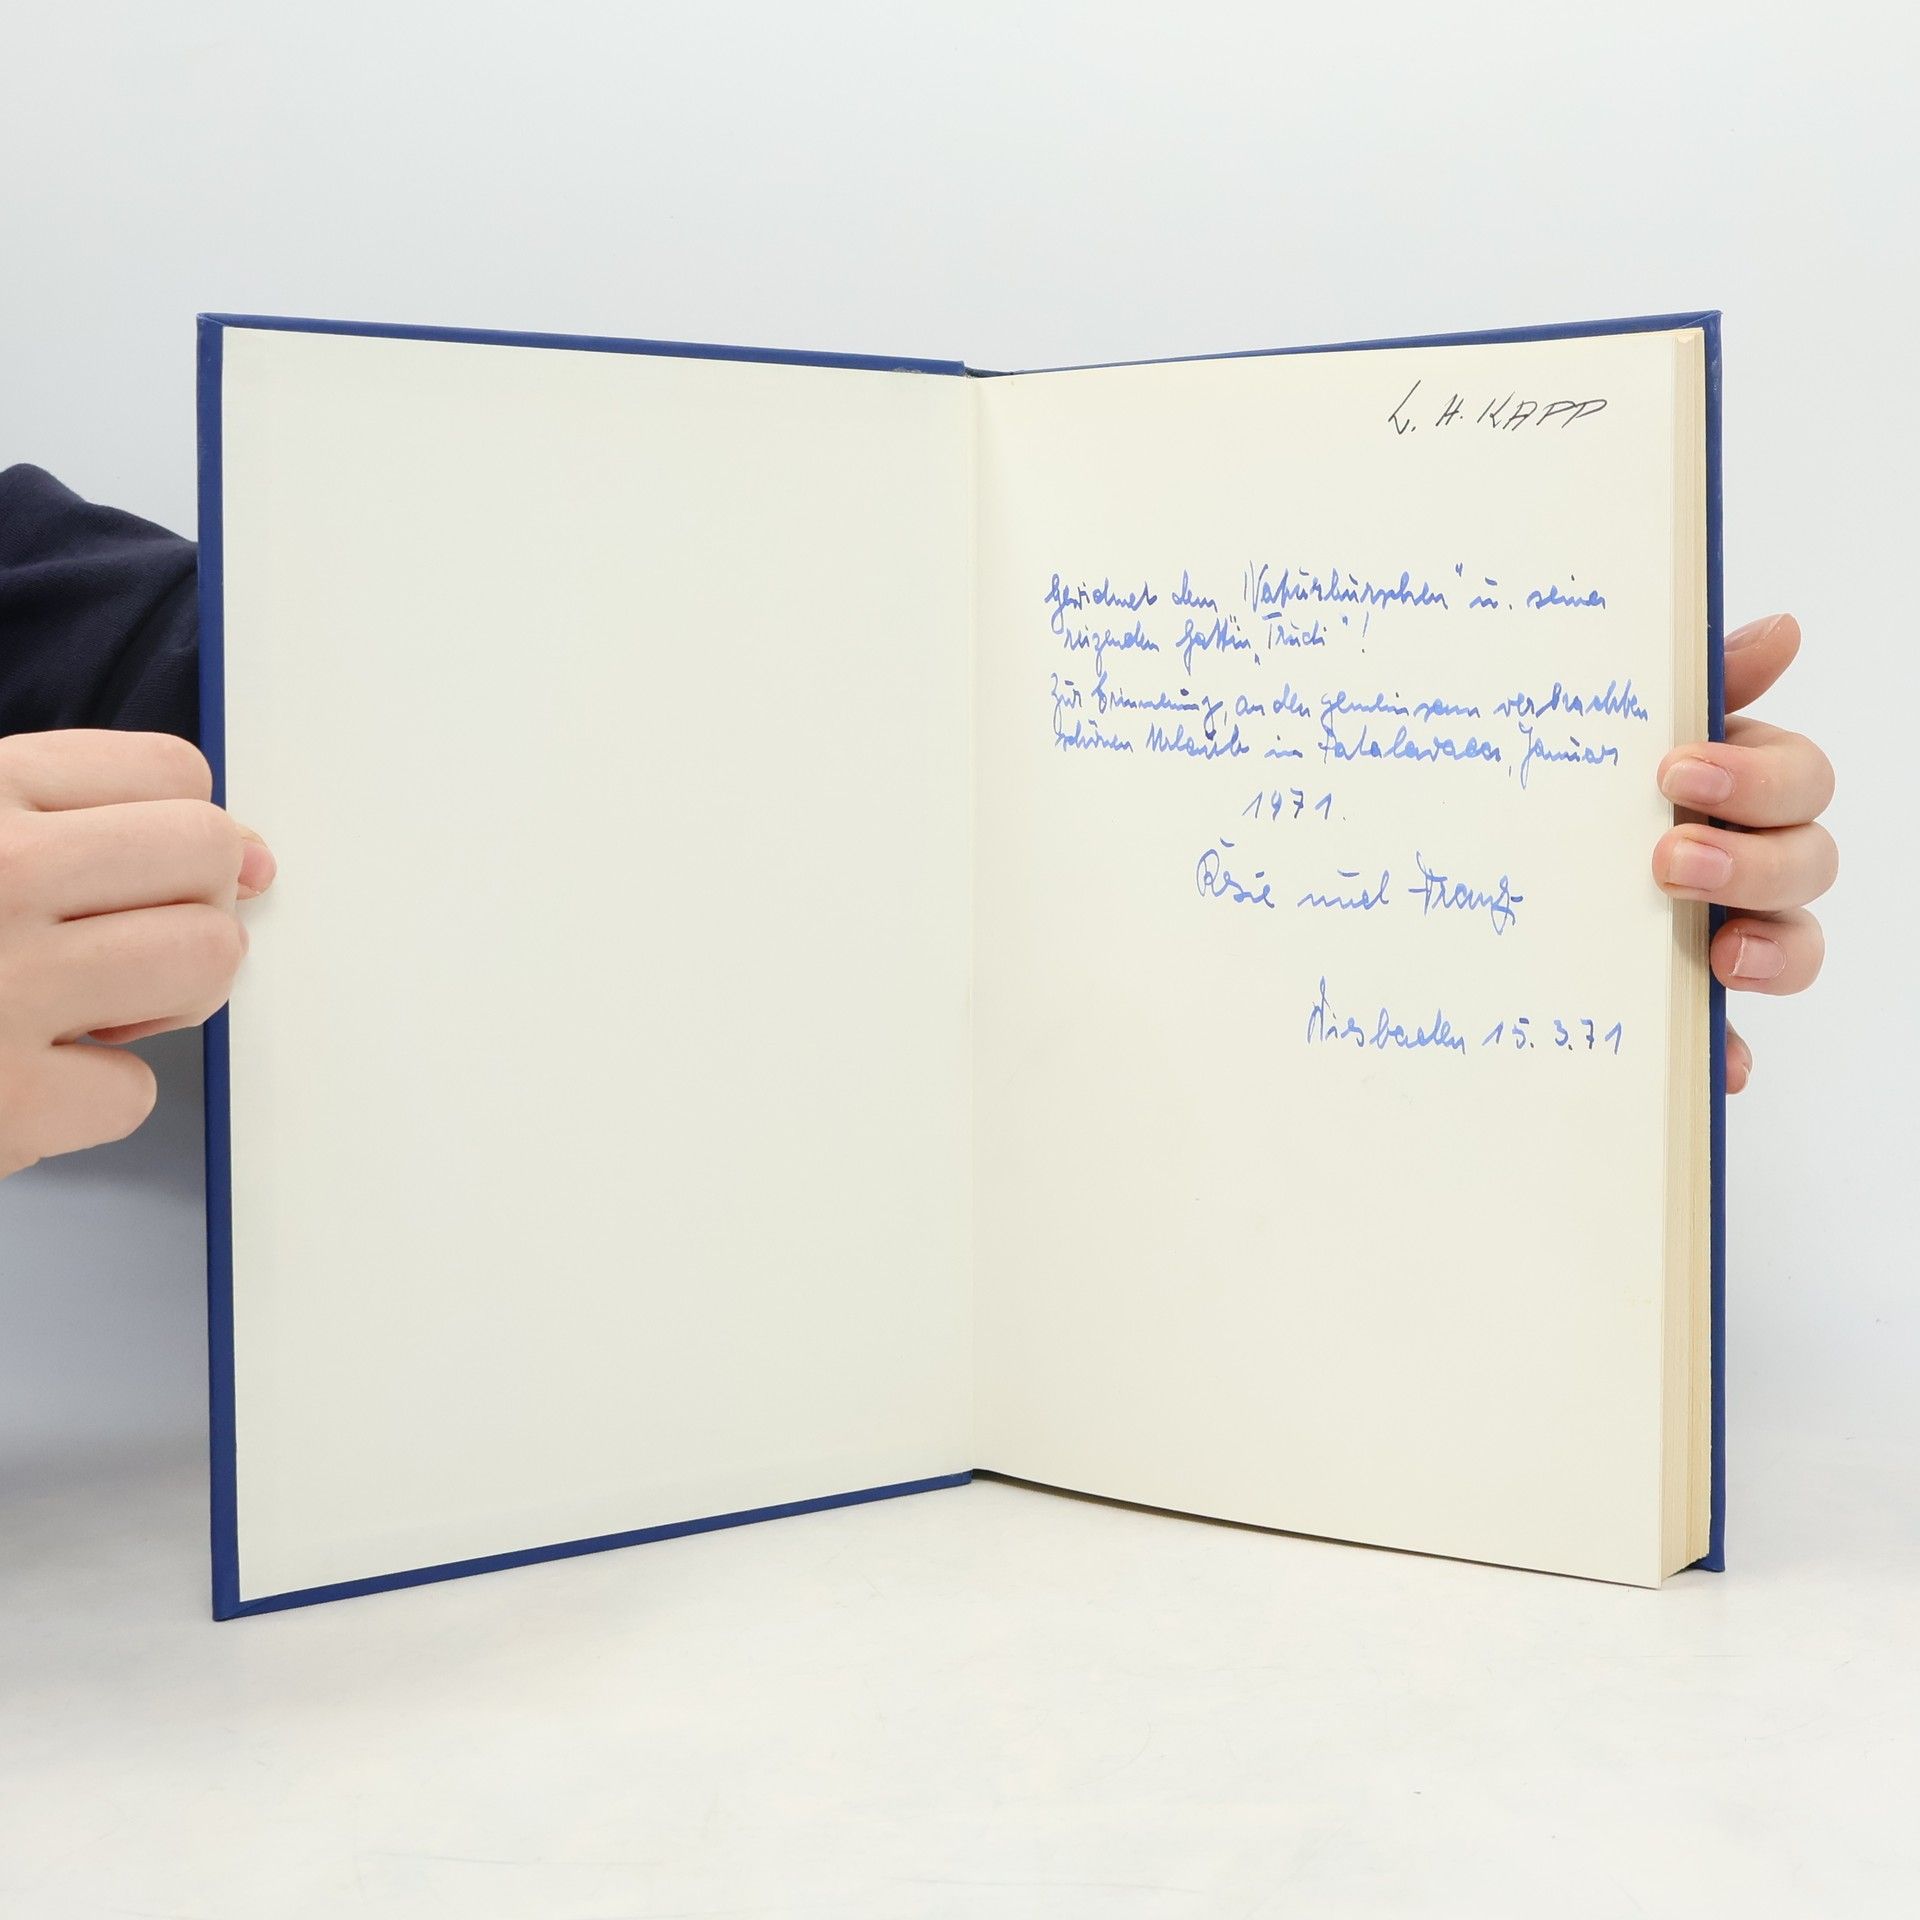 L. H. KAPP
Gewidmet dem „Naturburschen" u. seiner
reizenden Gattin „Trudi"!
Zur Erinnerung, an den gemeinsam verbrachten
schönen Urlaub in Patalavaca, Januar
1971.
Resie und Franz
Wiesbaden 15.3.71